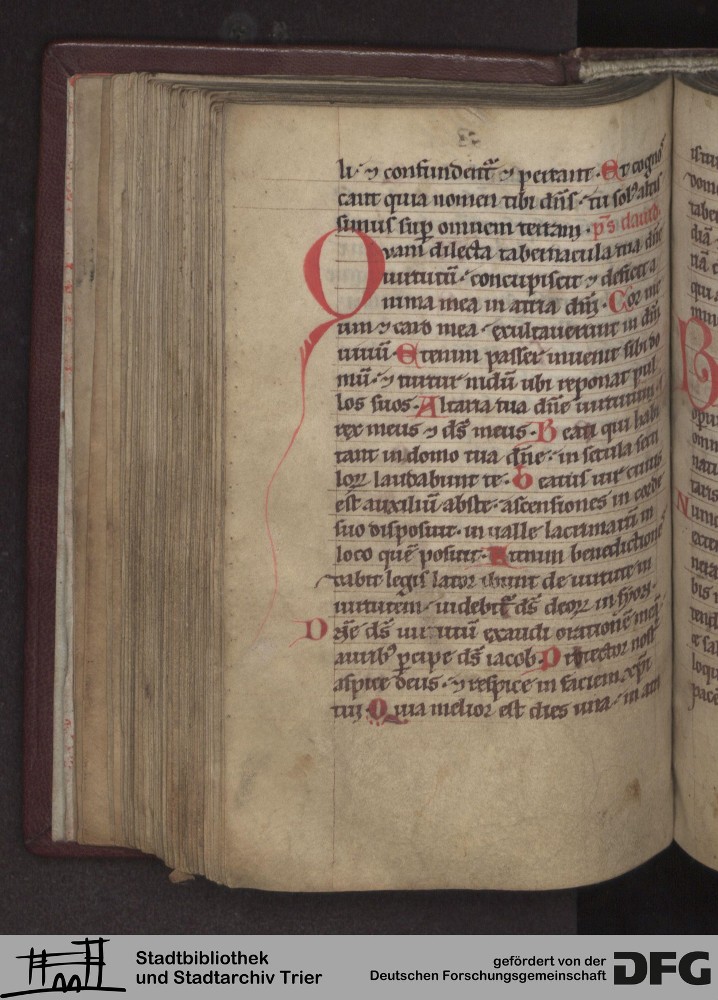 li · ⁊ confundent᷑ ⁊ pereant · Et cogno
scant quia nomen tibi dn̄s · tu sol᷒ altis
simus sup̄ omnem terram · ps̄ dauid ·
Qvam dilecta tabernacula tua dn̄e
uirtutū · concupiscit ⁊ deficit a
nima mea in atria dn̄i · Cor me
um ⁊ caro mea · exultauerunt in dm̄
uiuū · Etenim passer inuenit sibi do
mū · ⁊ turtur nidū ubi reponat pul
los suos · Altaria tua dn̄e uirtutum
rex meus ⁊ ds̄ meus · Beati qui habi
tant in domo tua dn̄e · in secula seculo
loꝝ laudabunt te · Beatus uir cuius
est auxiliū abs te · ascensiones in corde
suo disposuit · in ualle lacrimarū in
loco quē posuit · Etenim benedictionē
dabit legis lator ibunt de uirtute in
uirtutem · uidebit᷑ ds̄ deoꝝ in syon ·
Dn̄e ds̄ uirtutū exaudi orationē meā ·
aurib᷒ ꝑcipe ds̄ iacob · Protector nost̄
aspice deus · ⁊ respice in faciem xp̄i
tui · Quia melior est dies una · in atri
Stadtbibliothek
und Stadtarchiv Trier
gefördert von der
Deutschen Forschungsgemeinschaft
DFG